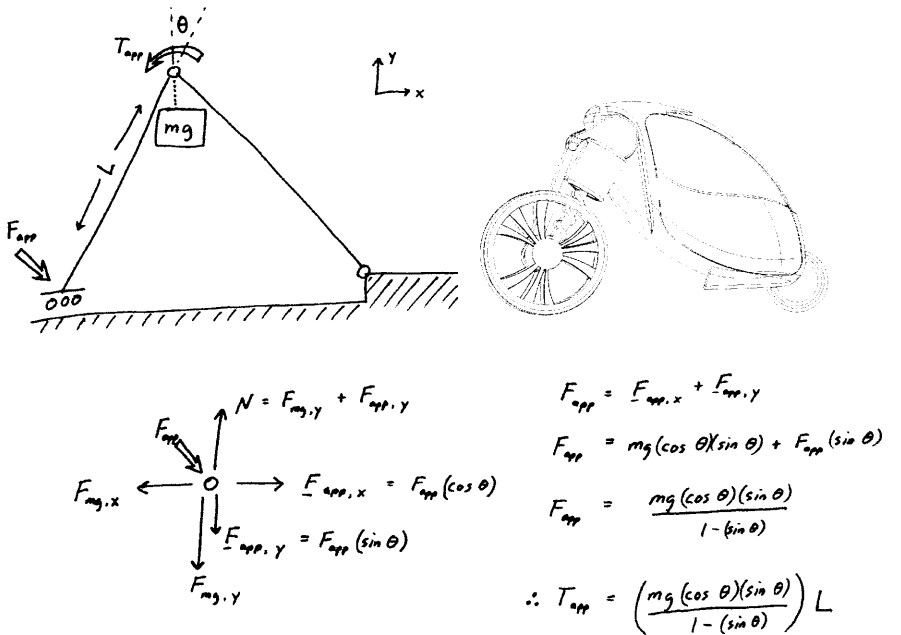 θ
T_app
y
x
mg
L
F_app
N = F_mg,y + F_app,y
F_app
F_mg,x
F_app,x = F_app (cos θ)
F_app,y = F_app (sin θ)
F_mg,y
F_app = F_app,x + F_app,y
F_app = mg (cos θ)(sin θ) + F_app (sin θ)
F_app = mg (cos θ)(sin θ) / 1 - (sin θ)
∴ T_app = (mg (cos θ)(sin θ) / 1 - (sin θ)) L